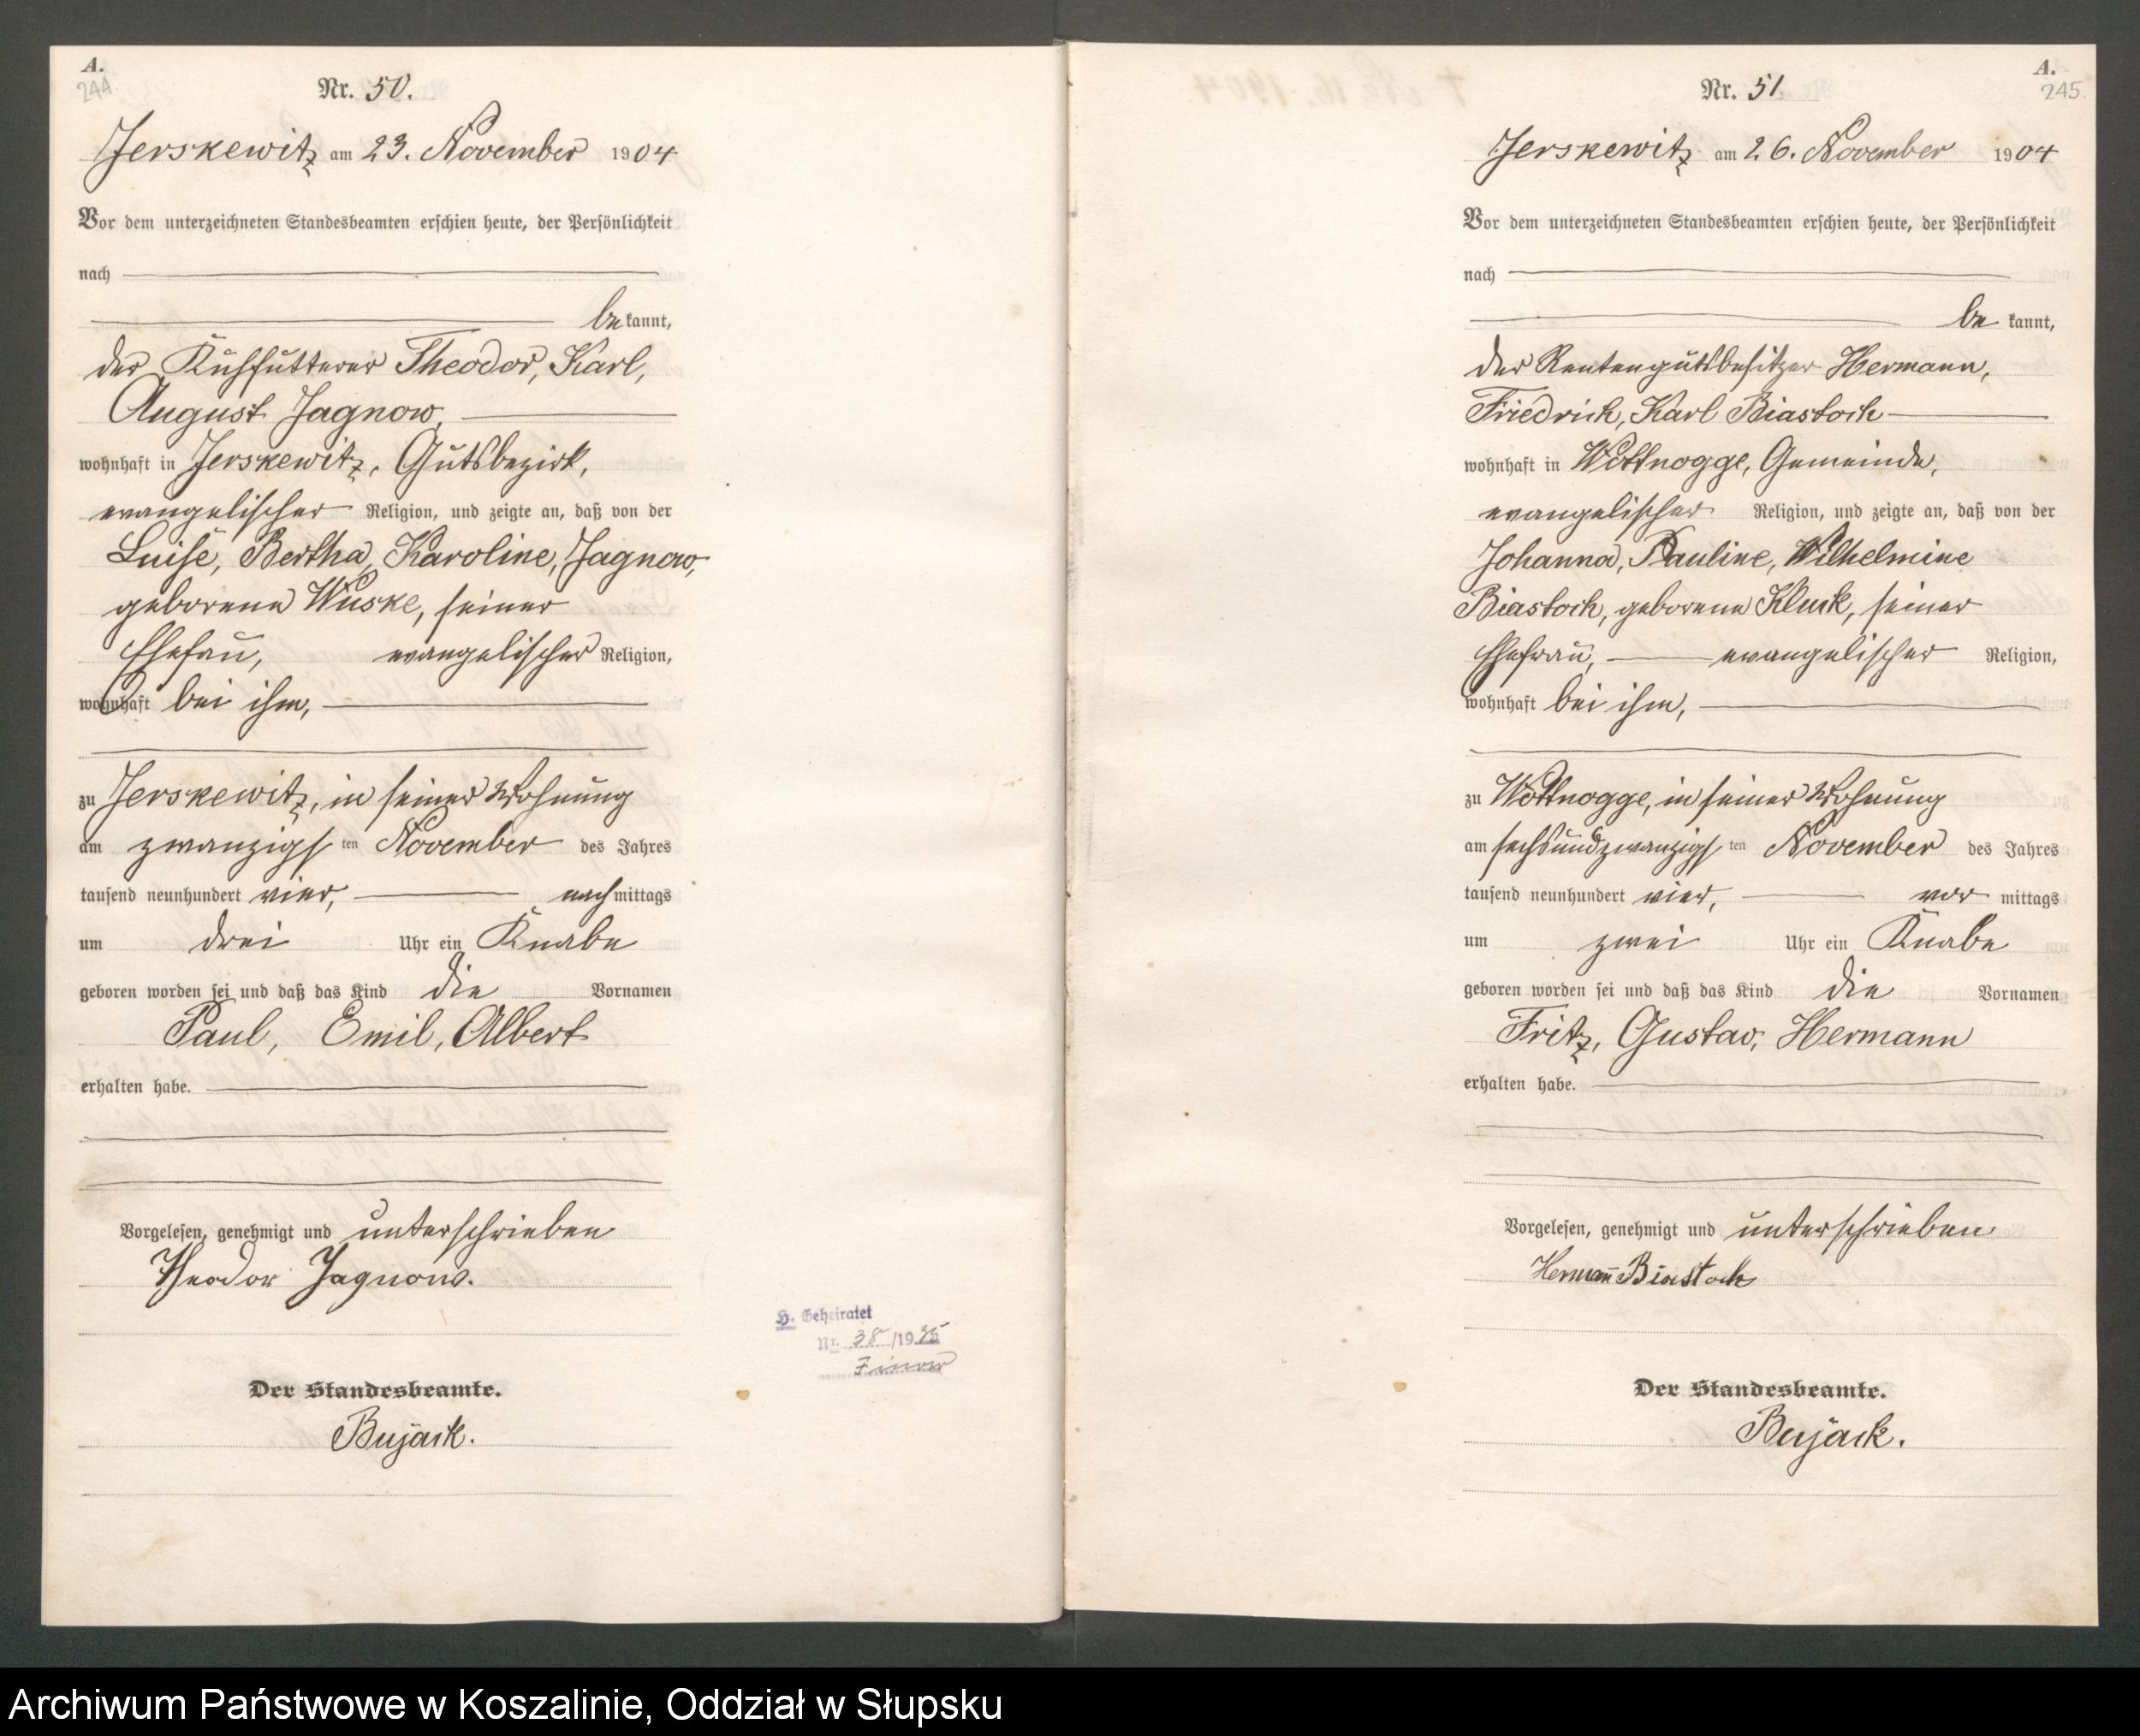 A.
244
Nr. 50.
Jerskewitz am 23. November 1904
Vor dem unterzeichneten Standesbeamten erschien heute, der Persönlichkeit
nach
bekannt,
der Kuhfutterer Theodor, Karl,
August Jagnow
wohnhaft in Jerskewitz, Gutsbezirk,
evangelischer Religion, und zeigte an, daß von der
Luise, Bertha, Karoline, Jagnow,
geborene Wuske, seiner
Ehefau, evangelischer Religion,
wohnhaft bei ihm,
zu Jerskewitz, in seiner Wohnung
am zwanzigsten November des Jahres
tausend neunhundert vier, nachmittags
um drei Uhr ein Knabe
geboren worden sei und daß das Kind die Vornamen
Paul, Emil, Albert
erhalten habe.
Vorgelesen, genehmigt und unterschrieben
Theodor Jagnow.
Der Standesbeamte.
Bujack.
H. Geheiratet
Nr. 38/1935
A.
245.
Nr. 51
Jerskewitz am 26. November 1904
Vor dem unterzeichneten Standesbeamten erschien heute, der Persönlichkeit
nach
bekannt,
der Rentengutsbesitzer Hermann,
Friedrich, Karl Biastoch
wohnhaft in Wottnogge, Gemeinde,
evangelischer Religion, und zeigte an, daß von der
Johanna, Pauline, Wilhelmine
Biastoch, geborene Kluck, seiner
Ehefrau, evangelischer Religion,
wohnhaft bei ihm,
zu Wottnogge, in seiner Wohnung
am sechsundzwanzigsten November des Jahres
tausend neunhundert vier, vormittags
um zwei Uhr ein Knabe
geboren worden sei und daß das Kind die Vornamen
Fritz, Gustav, Hermann
erhalten habe.
Vorgelesen, genehmigt und unterschrieben
Hermann Biastoch
Der Standesbeamte.
Bujack.
Archiwum Państwowe w Koszalinie, Oddział w Słupsku